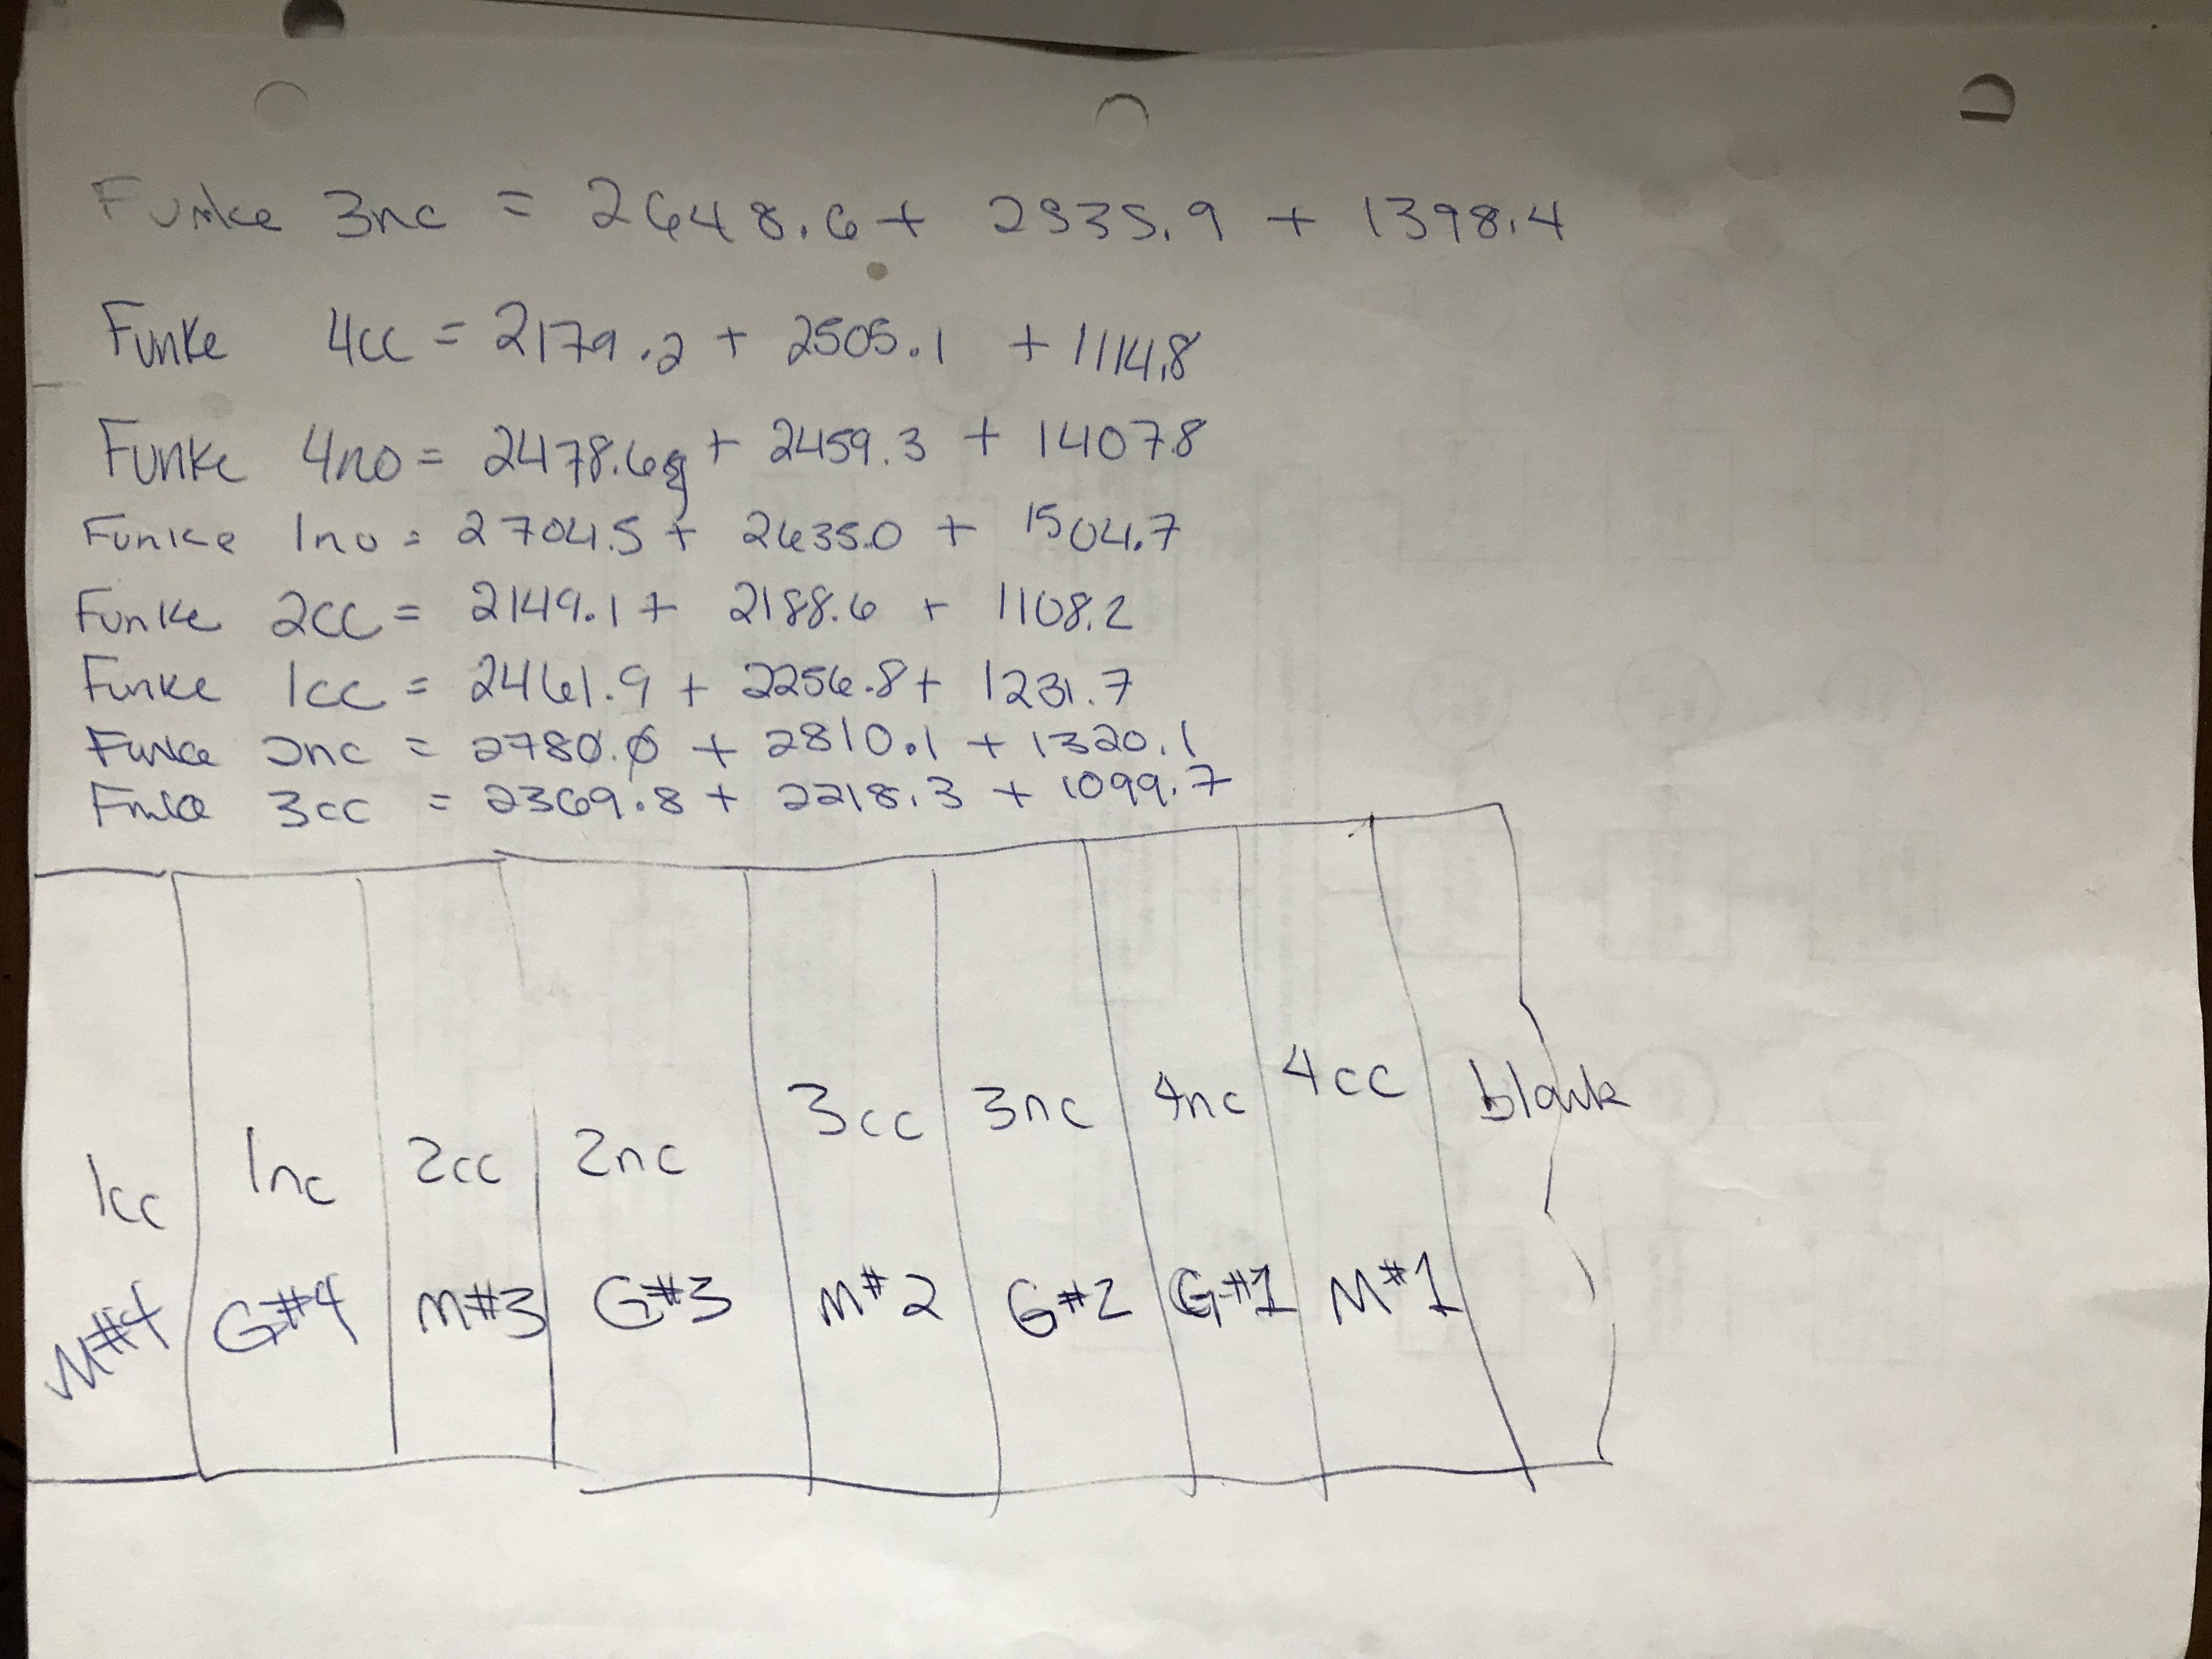 Funke 3nc = 2648.6 + 2535.9 + 1398.4
Funke 4cc = 2179.2 + 2505.1 + 1114.8
Funke 4no = 2478.6g + 2459.3 + 1407.8
Funke 1no = 2704.5 + 2635.0 + 1504.7
Funke 2cc = 2149.1 + 2188.6 + 1108.2
Funke 1cc = 2461.9 + 2256.8 + 1231.7
Funke 2nc = 2780.0 + 2810.1 + 1320.1
Funke 3cc = 2369.8 + 2218.3 + 1099.7
1cc 1nc 2cc 2nc 3cc 3nc 4nc 4cc blank
M#4 G#4 M#3 G#3 M#2 G#2 G#1 M#1